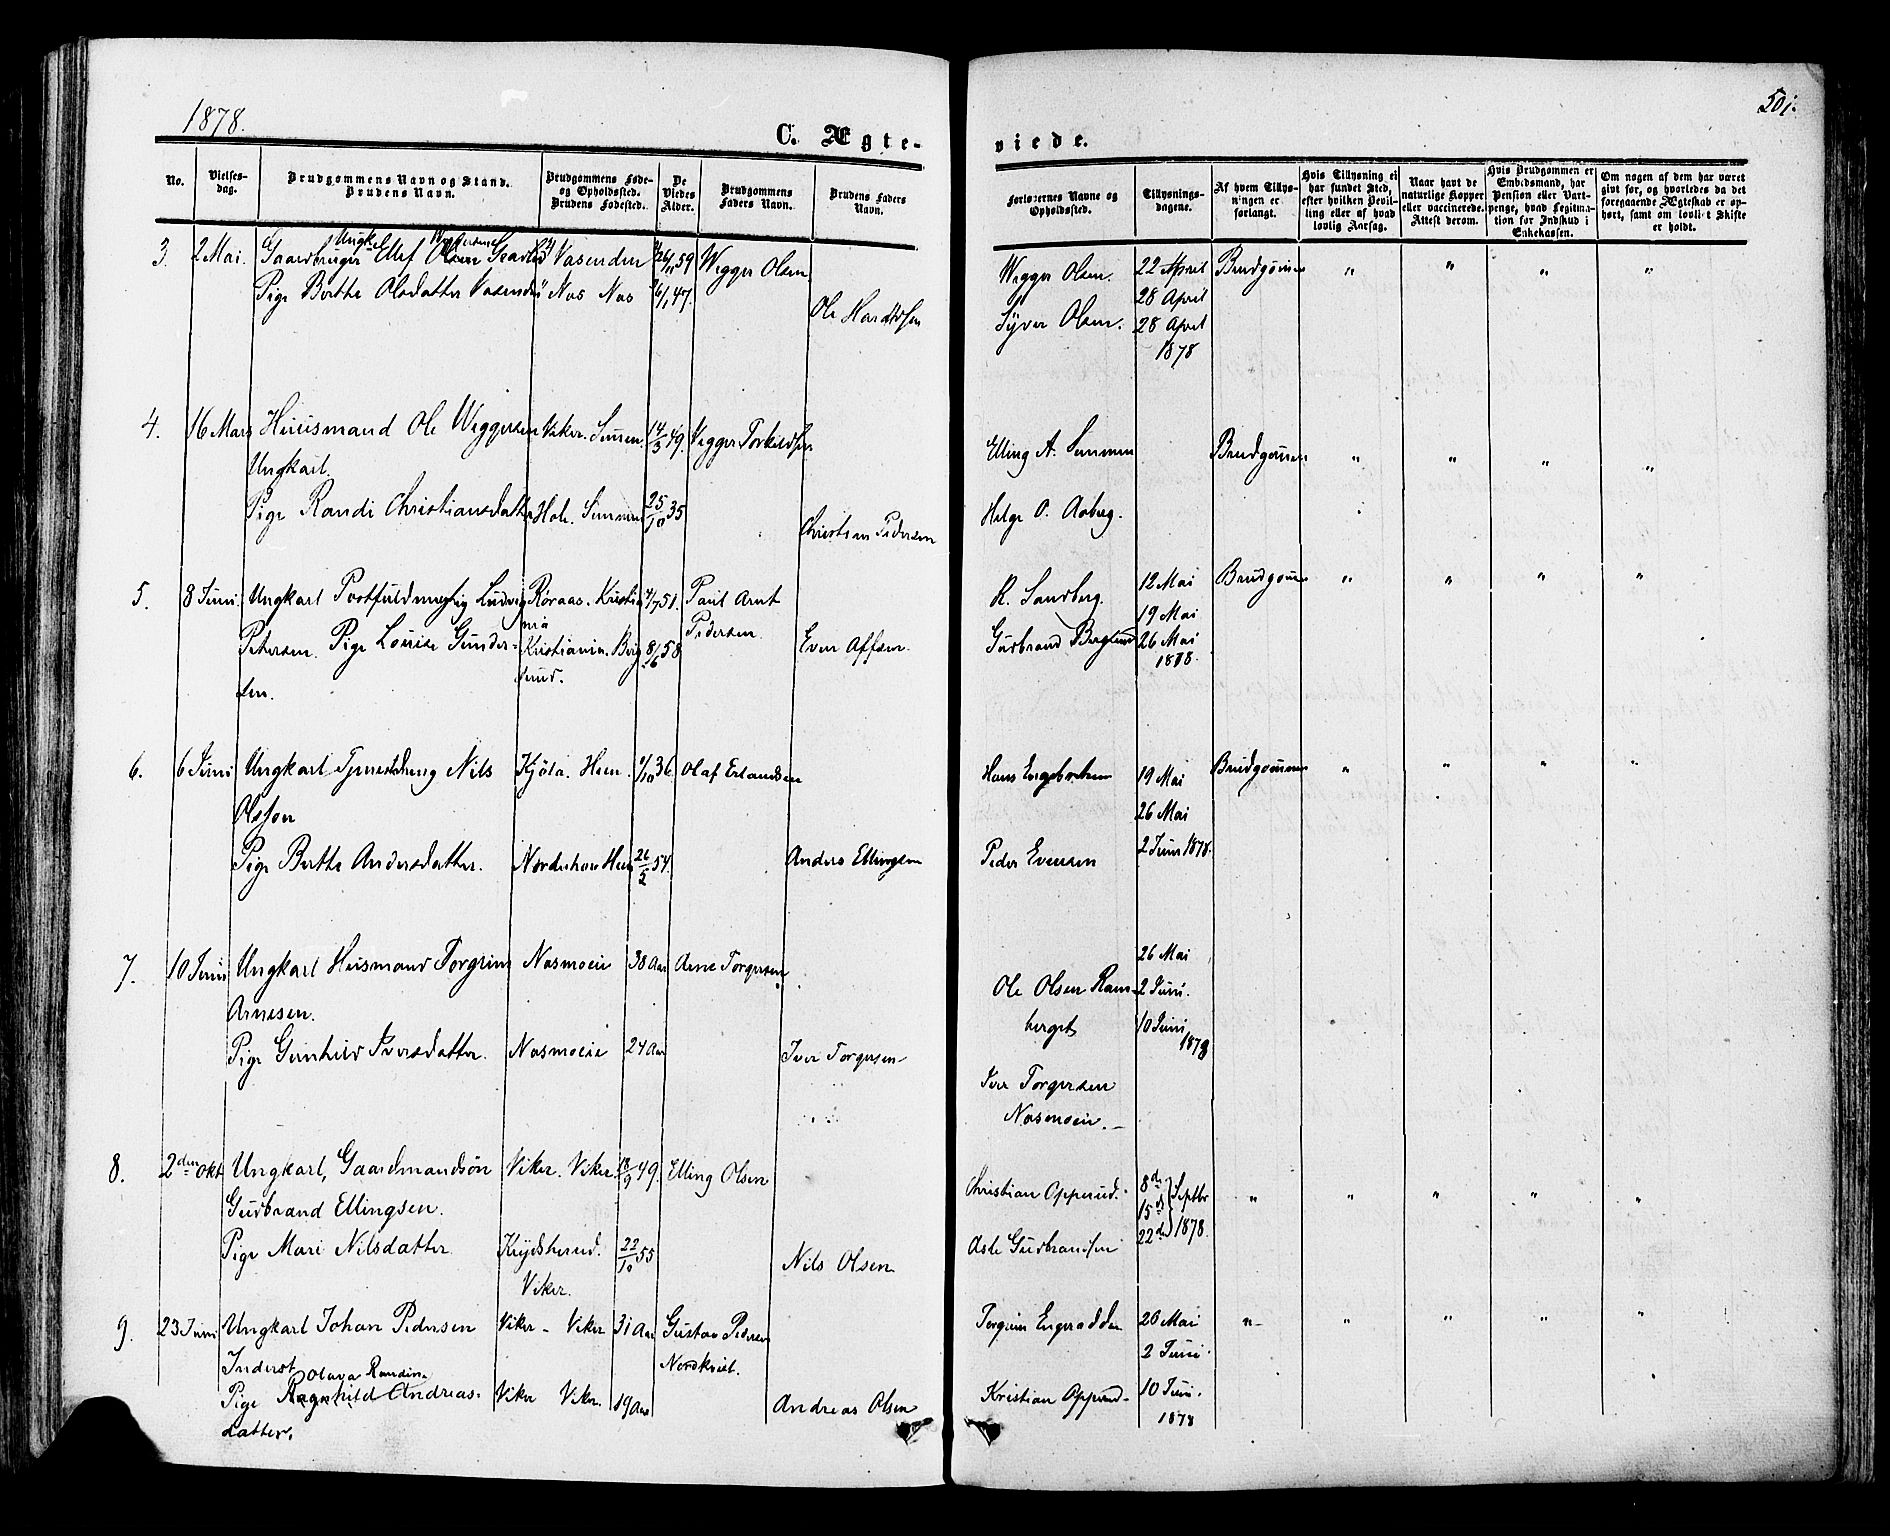 1878.
501.
C. Ægte-
viede.
No.
Vielses-
dag.
Brudgommens Navn og Stand.
Brudens Navn.
Brudgommens Føde-
og Opholdssted.
Brudens Fødested.
De
Viedes
Alder.
Brudgommens
Faders Navn.
Brudens Faders
Navn.
Forlovernes Navne og
Opholdssted.
Tillysnings-
dagene.
Af hvem Tillys-
ningen er
forlangt.
Hvis Tillysning ei
har fundet Sted,
efter hvilken Bevil-
ling eller af hvad
lovlig Aarsag.
Naar havt de
naturlige Kopper
eller vaccinerede.
Attest derom.
Hvis Brudgommen er
Embedsmand, har
Pension eller Vart-
penge, hvad Legitima-
tion for Indskud i
Enkekassen.
Om nogen af dem har været
givt før, og hvorledes da det
foregaaende Ægteskab er op-
hørt, samt om lovligt Skifte
er holdt.
3. 2 Mai. Gaardbruger Ungk. Ellef Olsen Vasenden 26/11 59 Wegger Olsen Wegger Olsen. 22 April Brudgommen " " " "
Pige Berthe Olsdatter Vasenden Nas Nas 16/1 47. 28 April
Ole Haraldsen Syver Olsen. 28 April
1878
4. 16 Mars Huusmand Ole Weggersen Viker. Sunen. 14/3 49. Vegger Torkildsen Elling A. Sunnen Brudgommen " " " "
Ungkarl.
Pige Randi Christiansdatter Hole. Sunnen 25/10 35 Christian Pedersen Helge O. Aaberg.
5. 8 Juni Ungkarl Postfuldmægtig Ludvig Røraas. Kristia 4/7 51. Paul Arnt R. Sandberg. 12 Mai Brudgommen " " " "
nia Pedersen. 19 Mai
Petersen. Pige Louise Gunder- Kristiania. Berg 8/6 58 Even Gudbrand Berglund 26 Mai
sen. sund. 1878.
6. 6 Juni Ungkarl Tjenestdreng Nils Kjöla. Heen. 1/10 36. Olaf Erlandsen Hans Engebretsen 19 Mai Brudgommen " " " "
Olsson 26 Mai
Pige Berthe Andersdatter. Norderhov Heen 26/2 54. Anders Ellingsen Peder Evensen 2 Juni 1878.
7. 10 Juni Ungkarl Husmand Torgrim Nasmoeie 38 Aar Arne Torgersen 26 Mai
Arnesen. Ole Olsen Ram- 2 Juni.
berget 10 Juni
Pige Gunhild Iversdatter. Nasmoeie 24 Aar Iver Torgersen 1878
Iver Torgersen
Nasmoein.
8. 2den Okt Ungkarl, Gaardmandsøn Viker. Viker. 18/9 49. Elling Olsen Christian Opperud. 8de Septbr " " " " "
Gudbrand Ellingsen. 15de 1878.
Pige Mari Nilsdatter Krydsherud. 22/10 55 Nils Olsen Asle Gudbrandsen 22de
Viker.
9. 23 Juni Ungkarl Johan Pedersen Viker - Viker 31 Aar Gustav Pedersen Torgrim 26 Mai " " " " "
Inderst Nordkvist. 2 Juni
Olava Randine
Pige Ragnhild Andreas- Viker Viker. 19 Aar Andreas Olsen Kristian Opperud 10 Juni.
datter. 1878